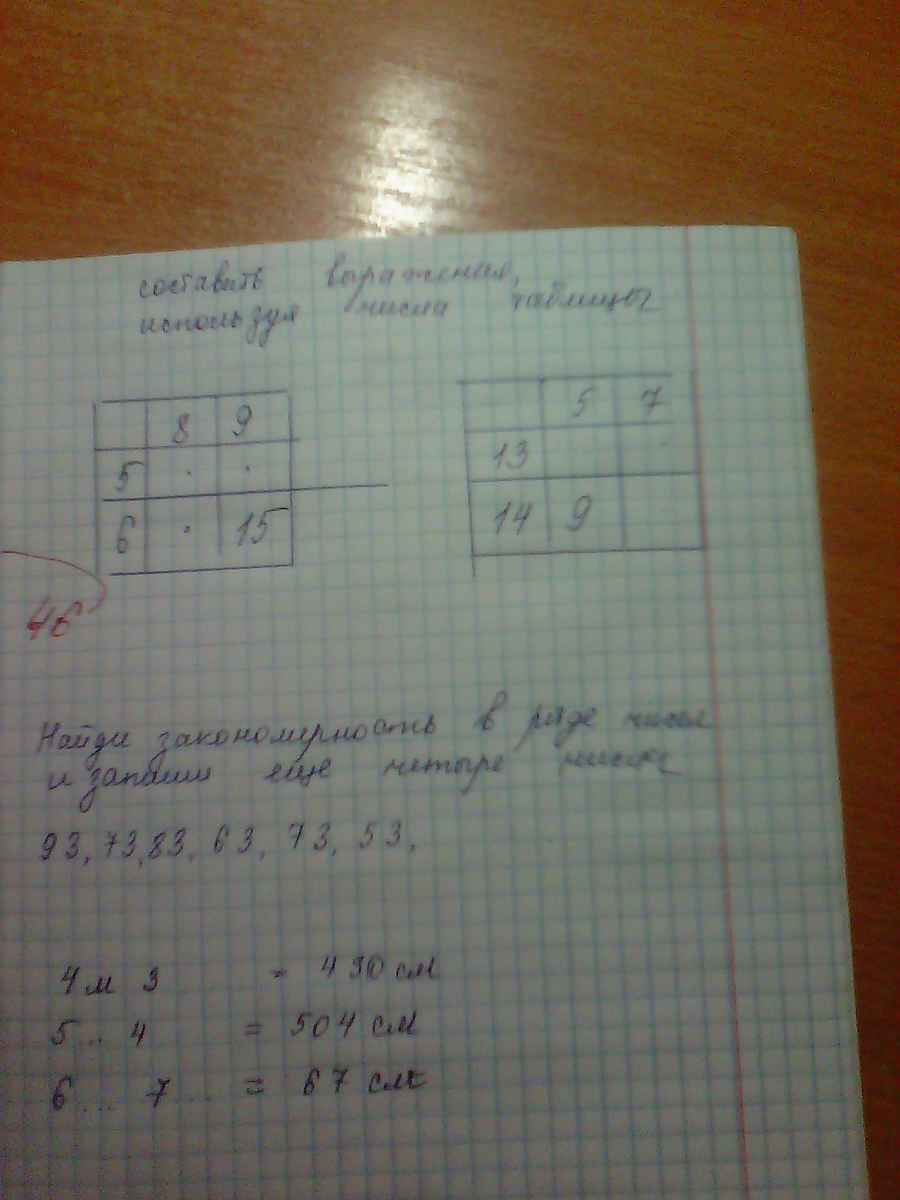 составить выражения,
используя числа таблицы
8 9
5 . .
6 . 15
5 7
13
14 9
46
Найди закономерность в ряде чисел
и запиши еще четыре числа
93, 73, 83, 63, 73, 53,
4 м 3 = 430 см
5 ... 4 = 504 см
6 ... 7 ... = 67 см